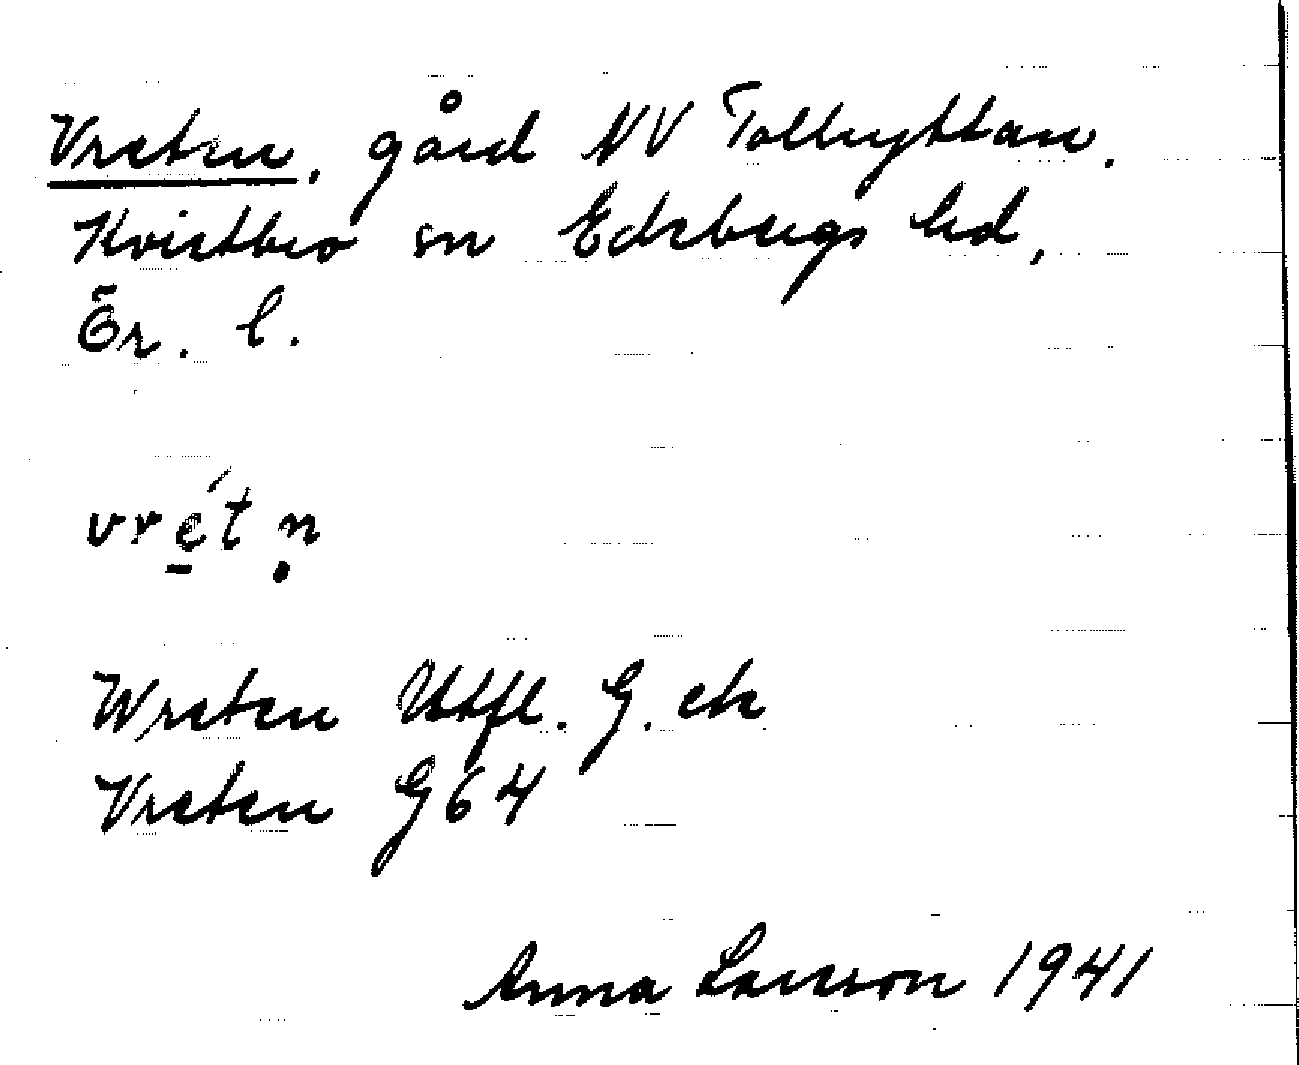 Vreten, gård NV Tolhyttan.
Kvistbro sn Edsbergs hd,
Ör. l.
vre̠´t ṇ
Wreten Utfl. G. ek
Vreten G64
Anna Larsson 1941